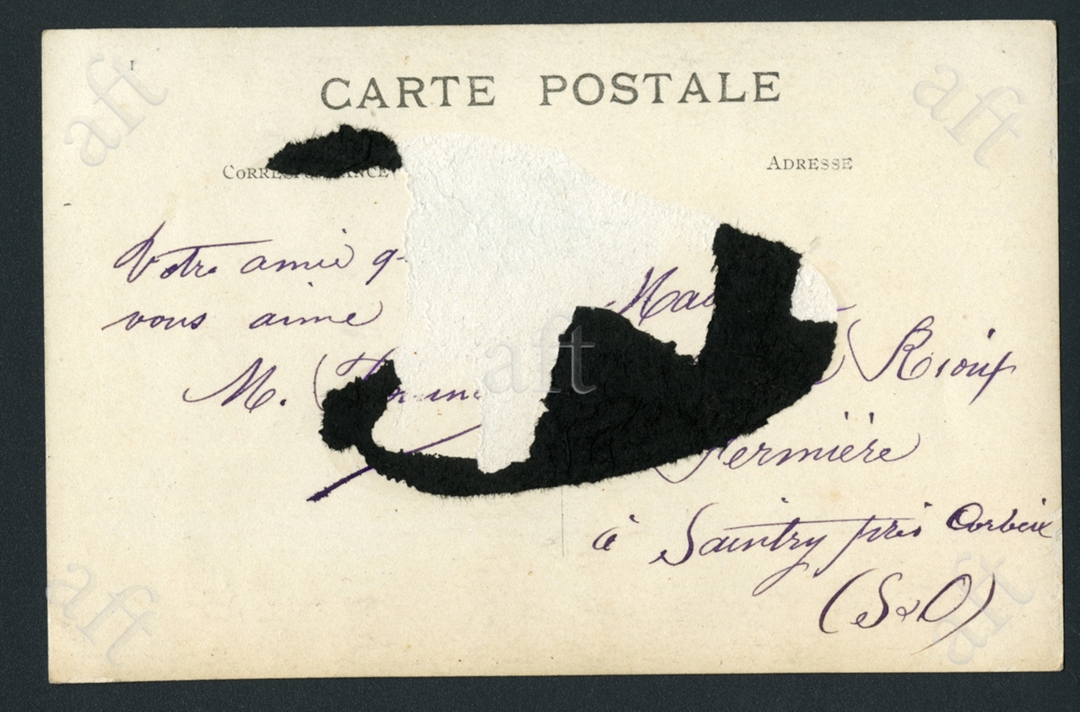 1
CARTE POSTALE
CORRESPONDANCE
ADRESSE
Votre amie q
vous aime
M.
Mad
Rioux
Fermière
à Saintry près Corbeil
(S&O)
aft
aft
aft
aft
aft